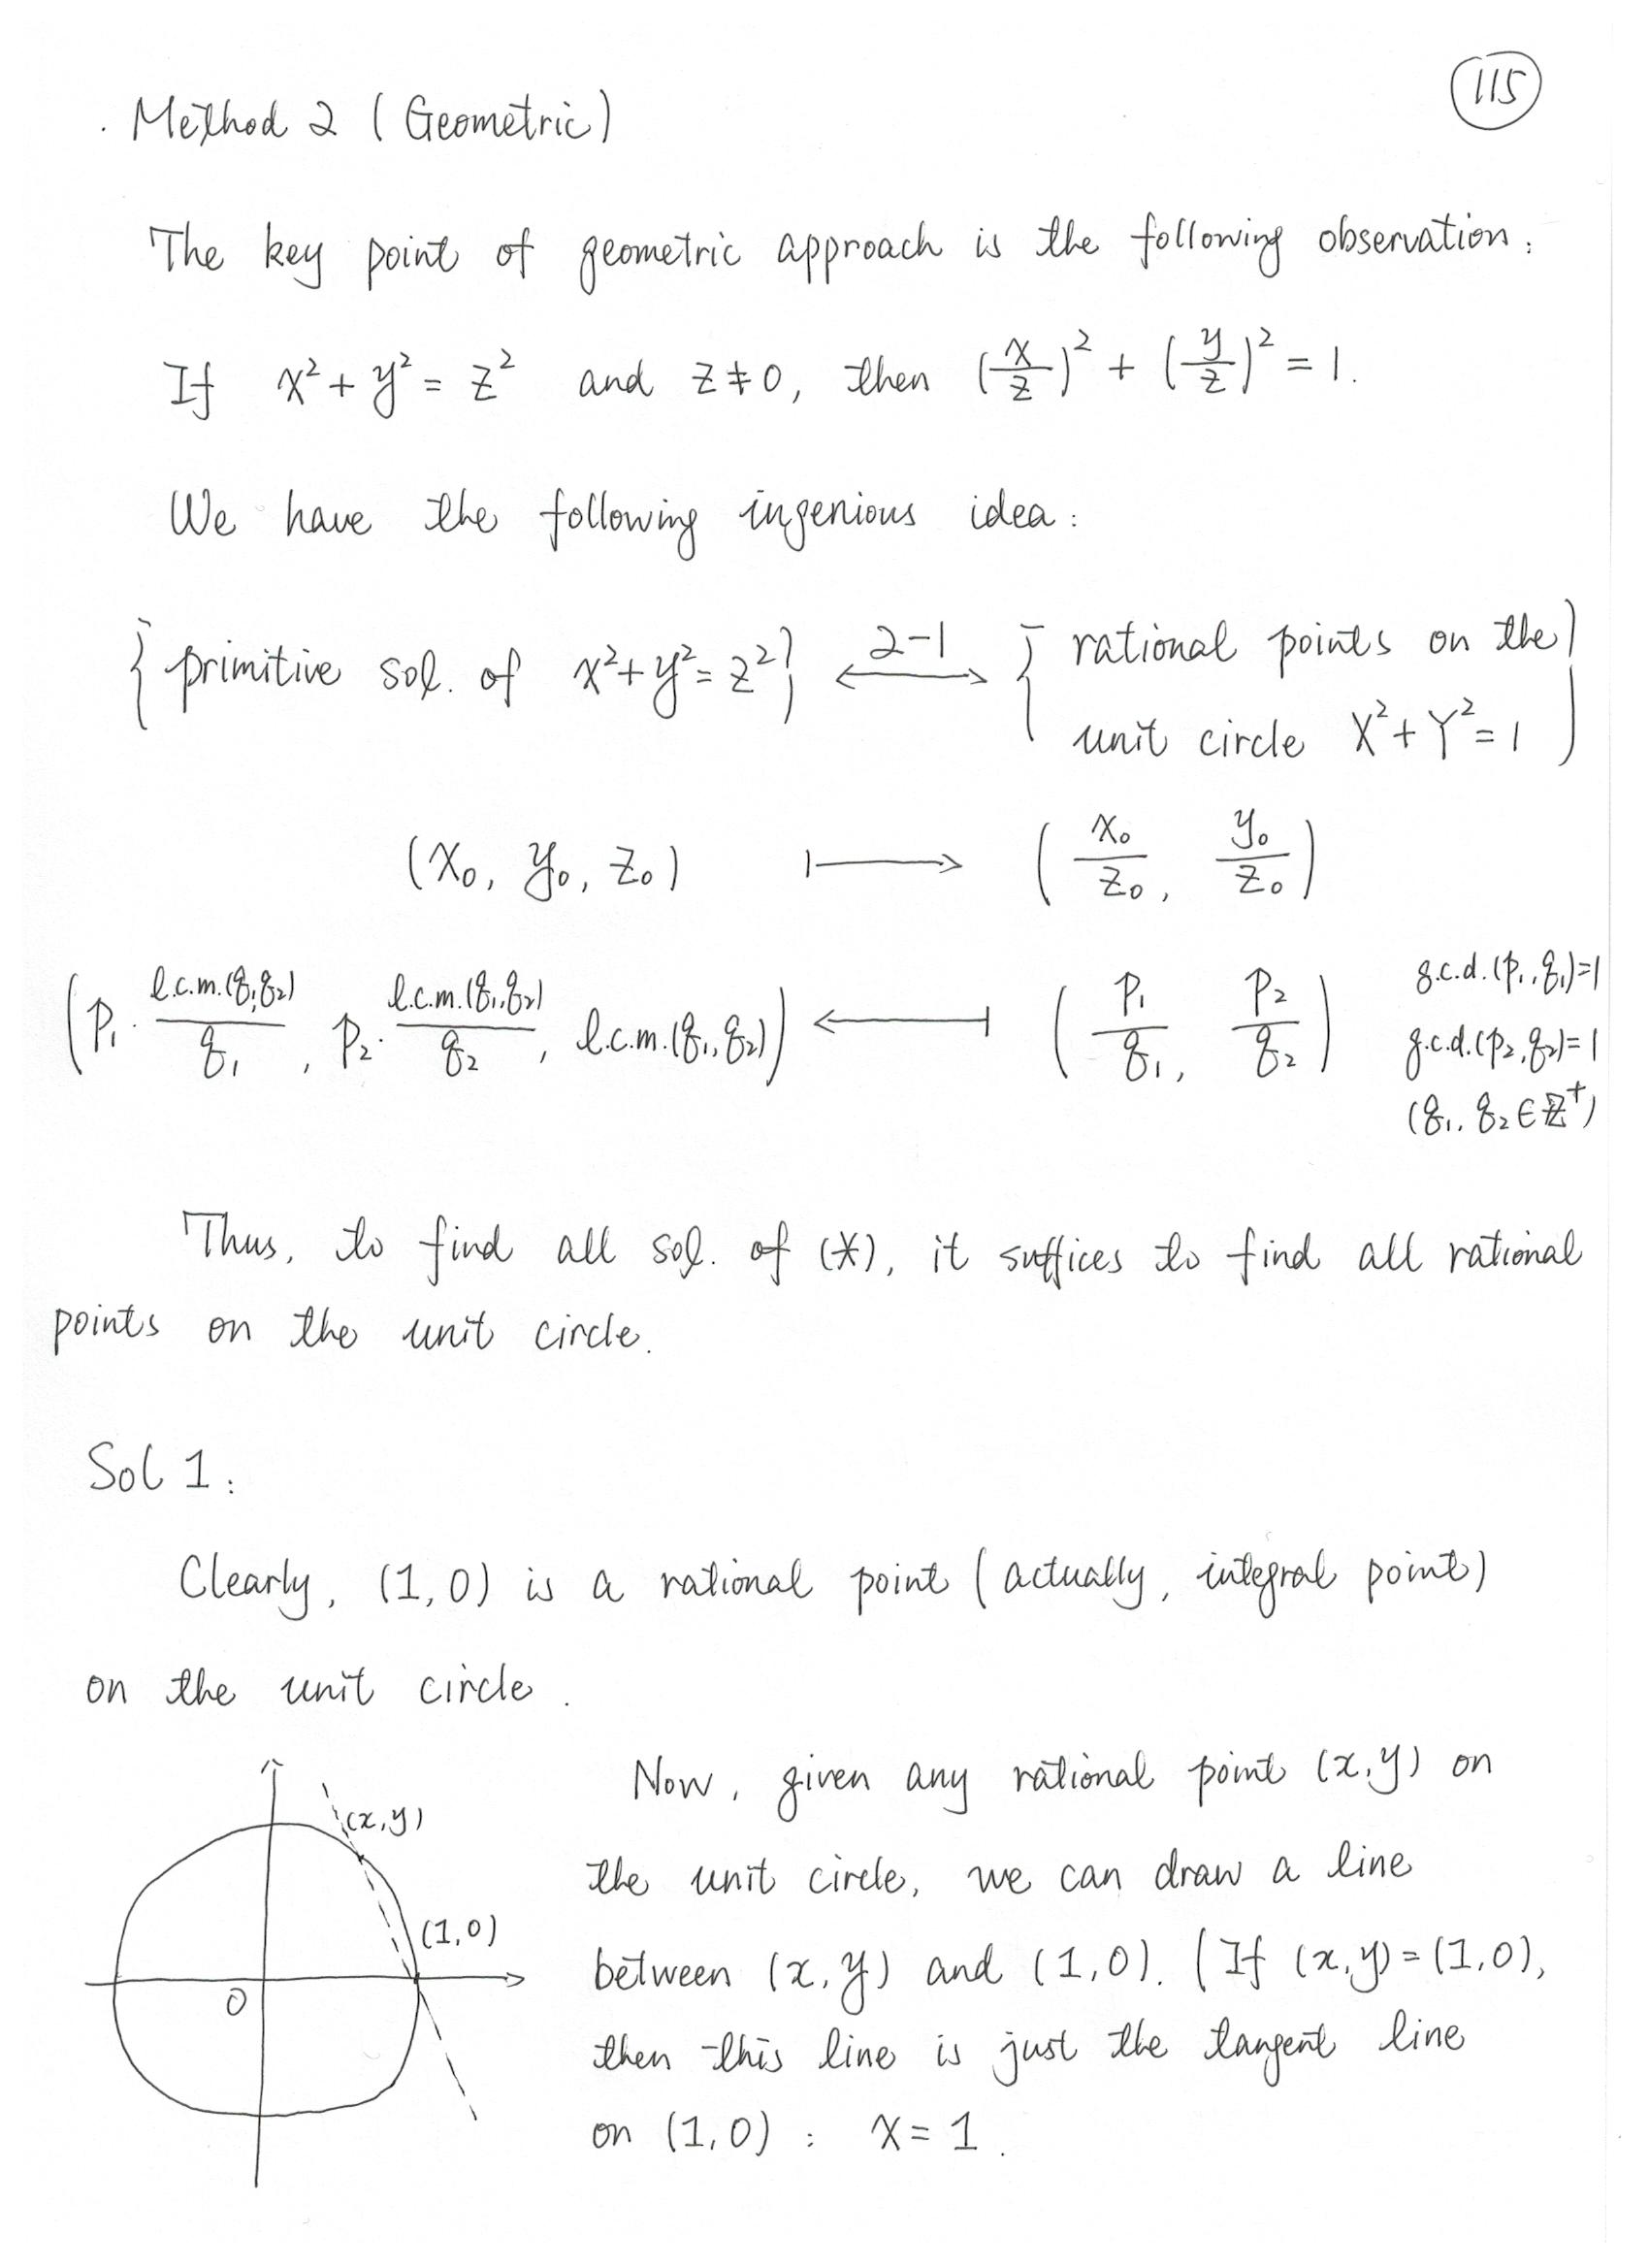 115
· Method 2 (Geometric)
The key point of geometric approach is the following observation:
If x² + y² = z² and z ≠ 0, then (x/z)² + (y/z)² = 1.
We have the following ingenious idea:
{primitive sol. of x²+y²=z²} ⟷ 2-1 {rational points on the
unit circle X²+Y²=1}
(x₀, y₀, z₀) ⟼ (x₀/z₀, y₀/z₀)
(p₁· l.c.m.(q₁,q₂)/q₁, p₂· l.c.m.(q₁,q₂)/q₂, l.c.m.(q₁,q₂)) ⟻ (p₁/q₁, p₂/q₂) g.c.d.(p₁,q₁)=1
g.c.d.(p₂,q₂)=1
(q₁, q₂ ∈ ℤ⁺)
Thus, to find all sol. of (*), it suffices to find all rational
points on the unit circle.
Sol 1:
Clearly, (1,0) is a rational point (actually, integral point)
on the unit circle.
(x,y)
(1,0)
O
Now, given any rational point (x,y) on
the unit circle, we can draw a line
between (x,y) and (1,0). (If (x,y)=(1,0),
then this line is just the tangent line
on (1,0) : x=1.